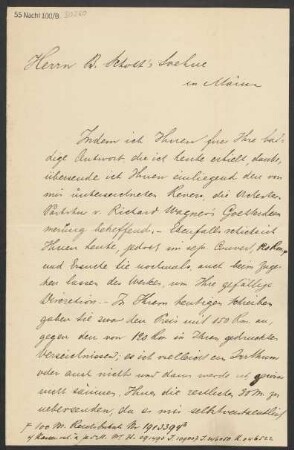 55 Nachl 100/B
Herrn B. Schott's Soehne
in Mainz
Indem ich Ihnen fuer Ihre bal-
dige Antwort die ich heute erhielt, danke,
übersende ich Ihnen einliegend den von
mir unterzeichneten Revers, die Orchester
Partitur v. Richard Wagner's Goetterdäm
merung betreffend. – Ebenfalls schicke ich
Ihnen heute, jedoch im sep. Couvert,
und Ersuche Sie nochmals, auch beim
lassen des Werkes, um Ihre gefällige
Direction. – In Ihrem heutigen Schreiben
gaben Sie zwar den Preis mit 150 Rm an,
gegen den von 120 Rm in Ihren gedruckten
Verzeichnissen; es ist vielleicht ein Irrthum
oder auch nicht und dann werde ich gewiss
nicht säumen, Ihnen die restlichen 30 M. zu
uebersenden, da es mir selbstverstaendlich